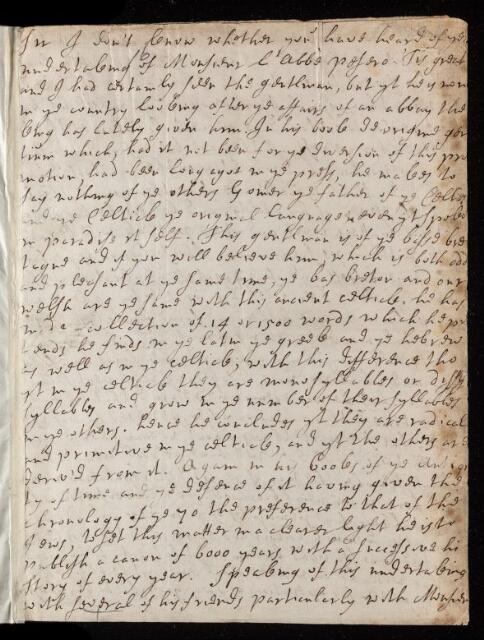 Sr I don't know whether you have heard of ye
undertaking of Monsieur l'Abbe pesero. Tis great
and I had certainly seen the gentleman, but yt he is now
in ye country looking after ye affairs of an abbay the
king has lately given him. In his book De origine gen
tium which, had it not been for ye Diversion of this pro
motion, had been long agoe in ye press, he makes to
say nothing of ye others Gomer ye father of ye Celtes
and ye Celtick ye original language even yt spoke
in paradise it self. This gentleman is of ye basse bre
tagne and if you will believe him, which is both odd
and pleasant at ye same time, ye bas breton and our
welsh are ye same with this ancient celtick, he has
made a collection of 14 or 1500 words which he pre
tends he finds in ye latin ye greek and ye hebrew
as well as in ye celtick, with this difference tho
yt in ye celtick they are monosyllables or dissy
syllables and grow in ye number of their syllables
in ye others. hence he concludes yt they are radical
and primitive in ye celtick, and yt the others are
deriv'd from it. Again in his books of ye antiqui
ty of time and ye defence of it having given the
chronology of ye 70 the preference to that of the
Jews, to set this matter in a clearer light he is to
publish a canon of 6000 years with a successive hi
story of every year. Speaking of this undertaking
with several of his friends particularly with Monsieur